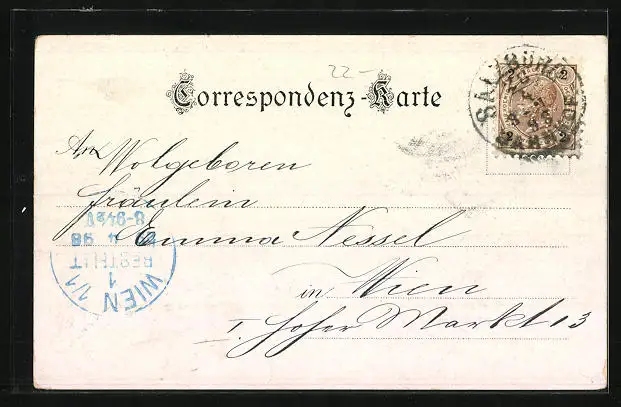 22-
Correspondenz-Karte
SALZBURG
BAHNHOF
2 2
2 2
An Wolgeboren
Fräulein
Emma Nessel
in Wien
I. Hoher Markt 13
WIEN 1/1
1
BESTELLT
4 98
8-9½V